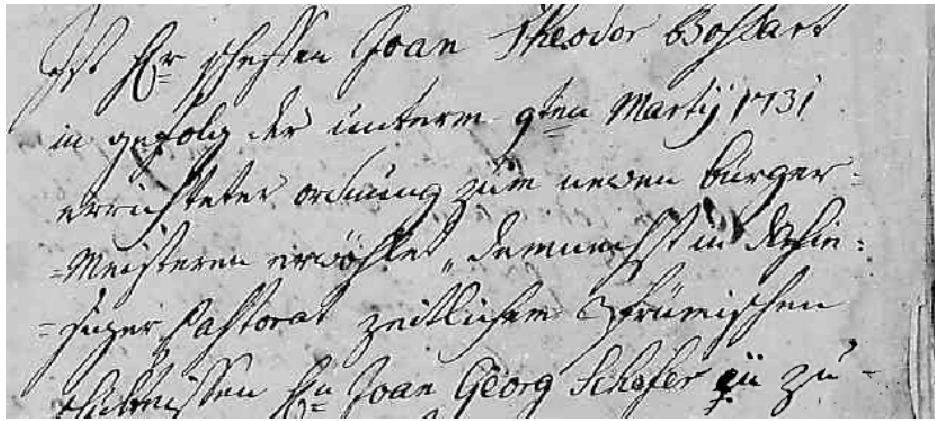 Ist Hr scheffen Joan Theodor Boshart
in gefolg der unterm 9ten Martÿ 1731
errichteter ordnung zum neuen burger-
-Meisteren erwöhlet, demnachst in
pastorat zeitlichem Prümischen
Hn Joan Georg Schefer in zu-